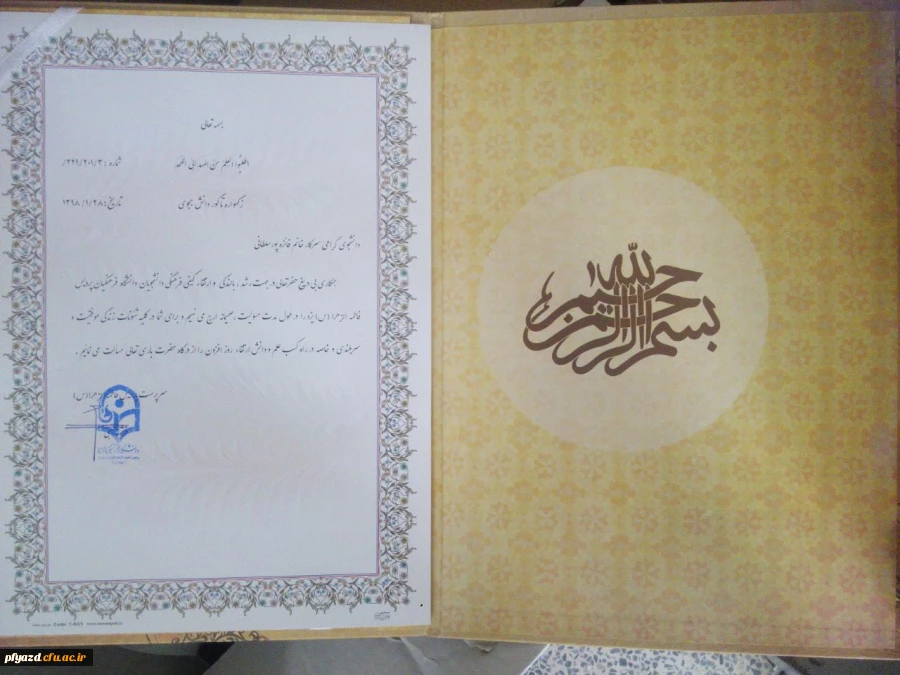 بسم الله الرحمن الرحیم
بسمه تعالی
اطلبوا العلم من المهد الی اللحد
شماره : ۲۲۹/۲۰۱/۳/
ز گهواره تا گور دانش بجوی
تاریخ: ۱۳۹۸/۹/۲۸
دانشجوی گرامی سرکار خانم فائزه پورسلطانی
همکاری بی دریغ حضرتعالی در جهت رشد، بالندگی و ارتقاء کیفی فرهنگی دانشجویان دانشگاه فرهنگیان پردیس
فاطمه الزهرا(س) یزد را در طول مدت مسئولیت، صمیمانه ارج می نهیم و برای شما در کلیه شئونات زندگی موفقیت و
سربلندی و خاصه در راه کسب علم و دانش ارتقاء روز افزون را از درگاه حضرت باری تعالی مسالت می نماییم .
سرپرست
pfyazd.cfu.ac.ir